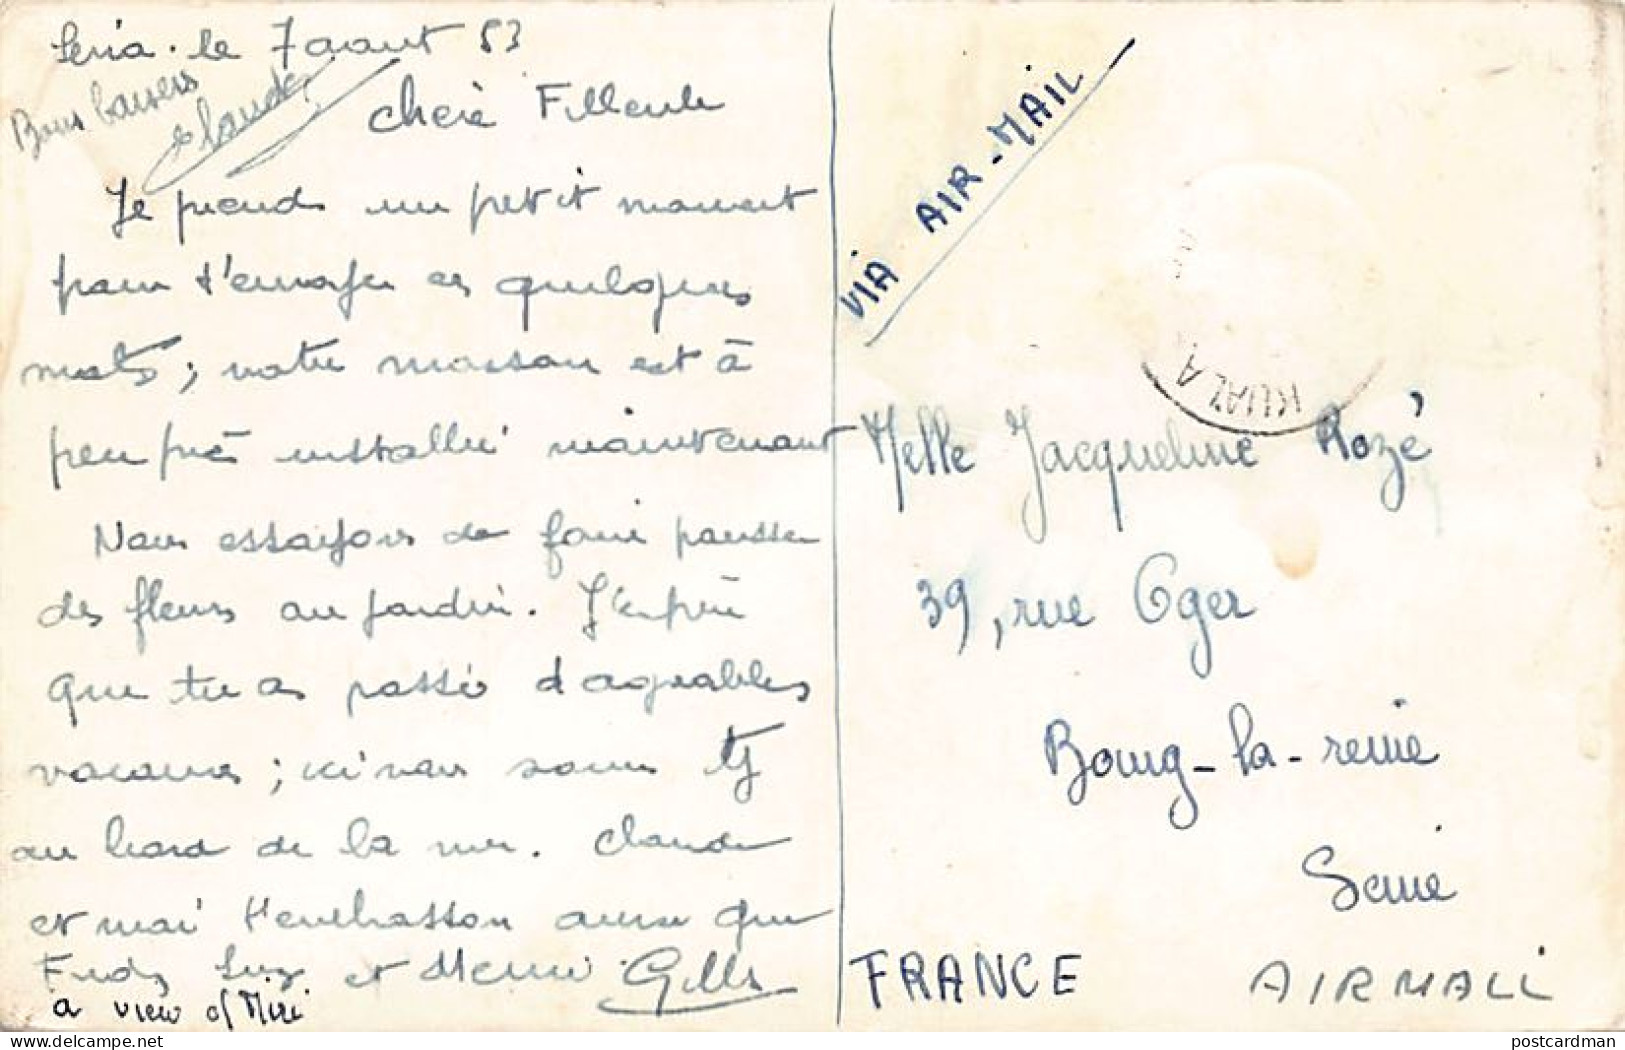 Seria. le 7 aout 53
Bons baisers
Claude
Chère Filleule
Je prends un petit moment
pour t'envoyer ces quelques
mots; notre maison est à
peu près installée maintenant
Nous essayons de faire pousser
des fleurs au jardin. J'espère
que tu as passé d'agréables
vacances; ici nous sommes tj
au bord de la mer. Claude
et moi t'embrassons ainsi que
et Gilles
a view of Miri
VIA AIR-MAIL
KUALA
Melle Jacqueline Rozé
39, rue Oger
Bourg-la-reine
Seine
FRANCE
AIRMALL
postcardman